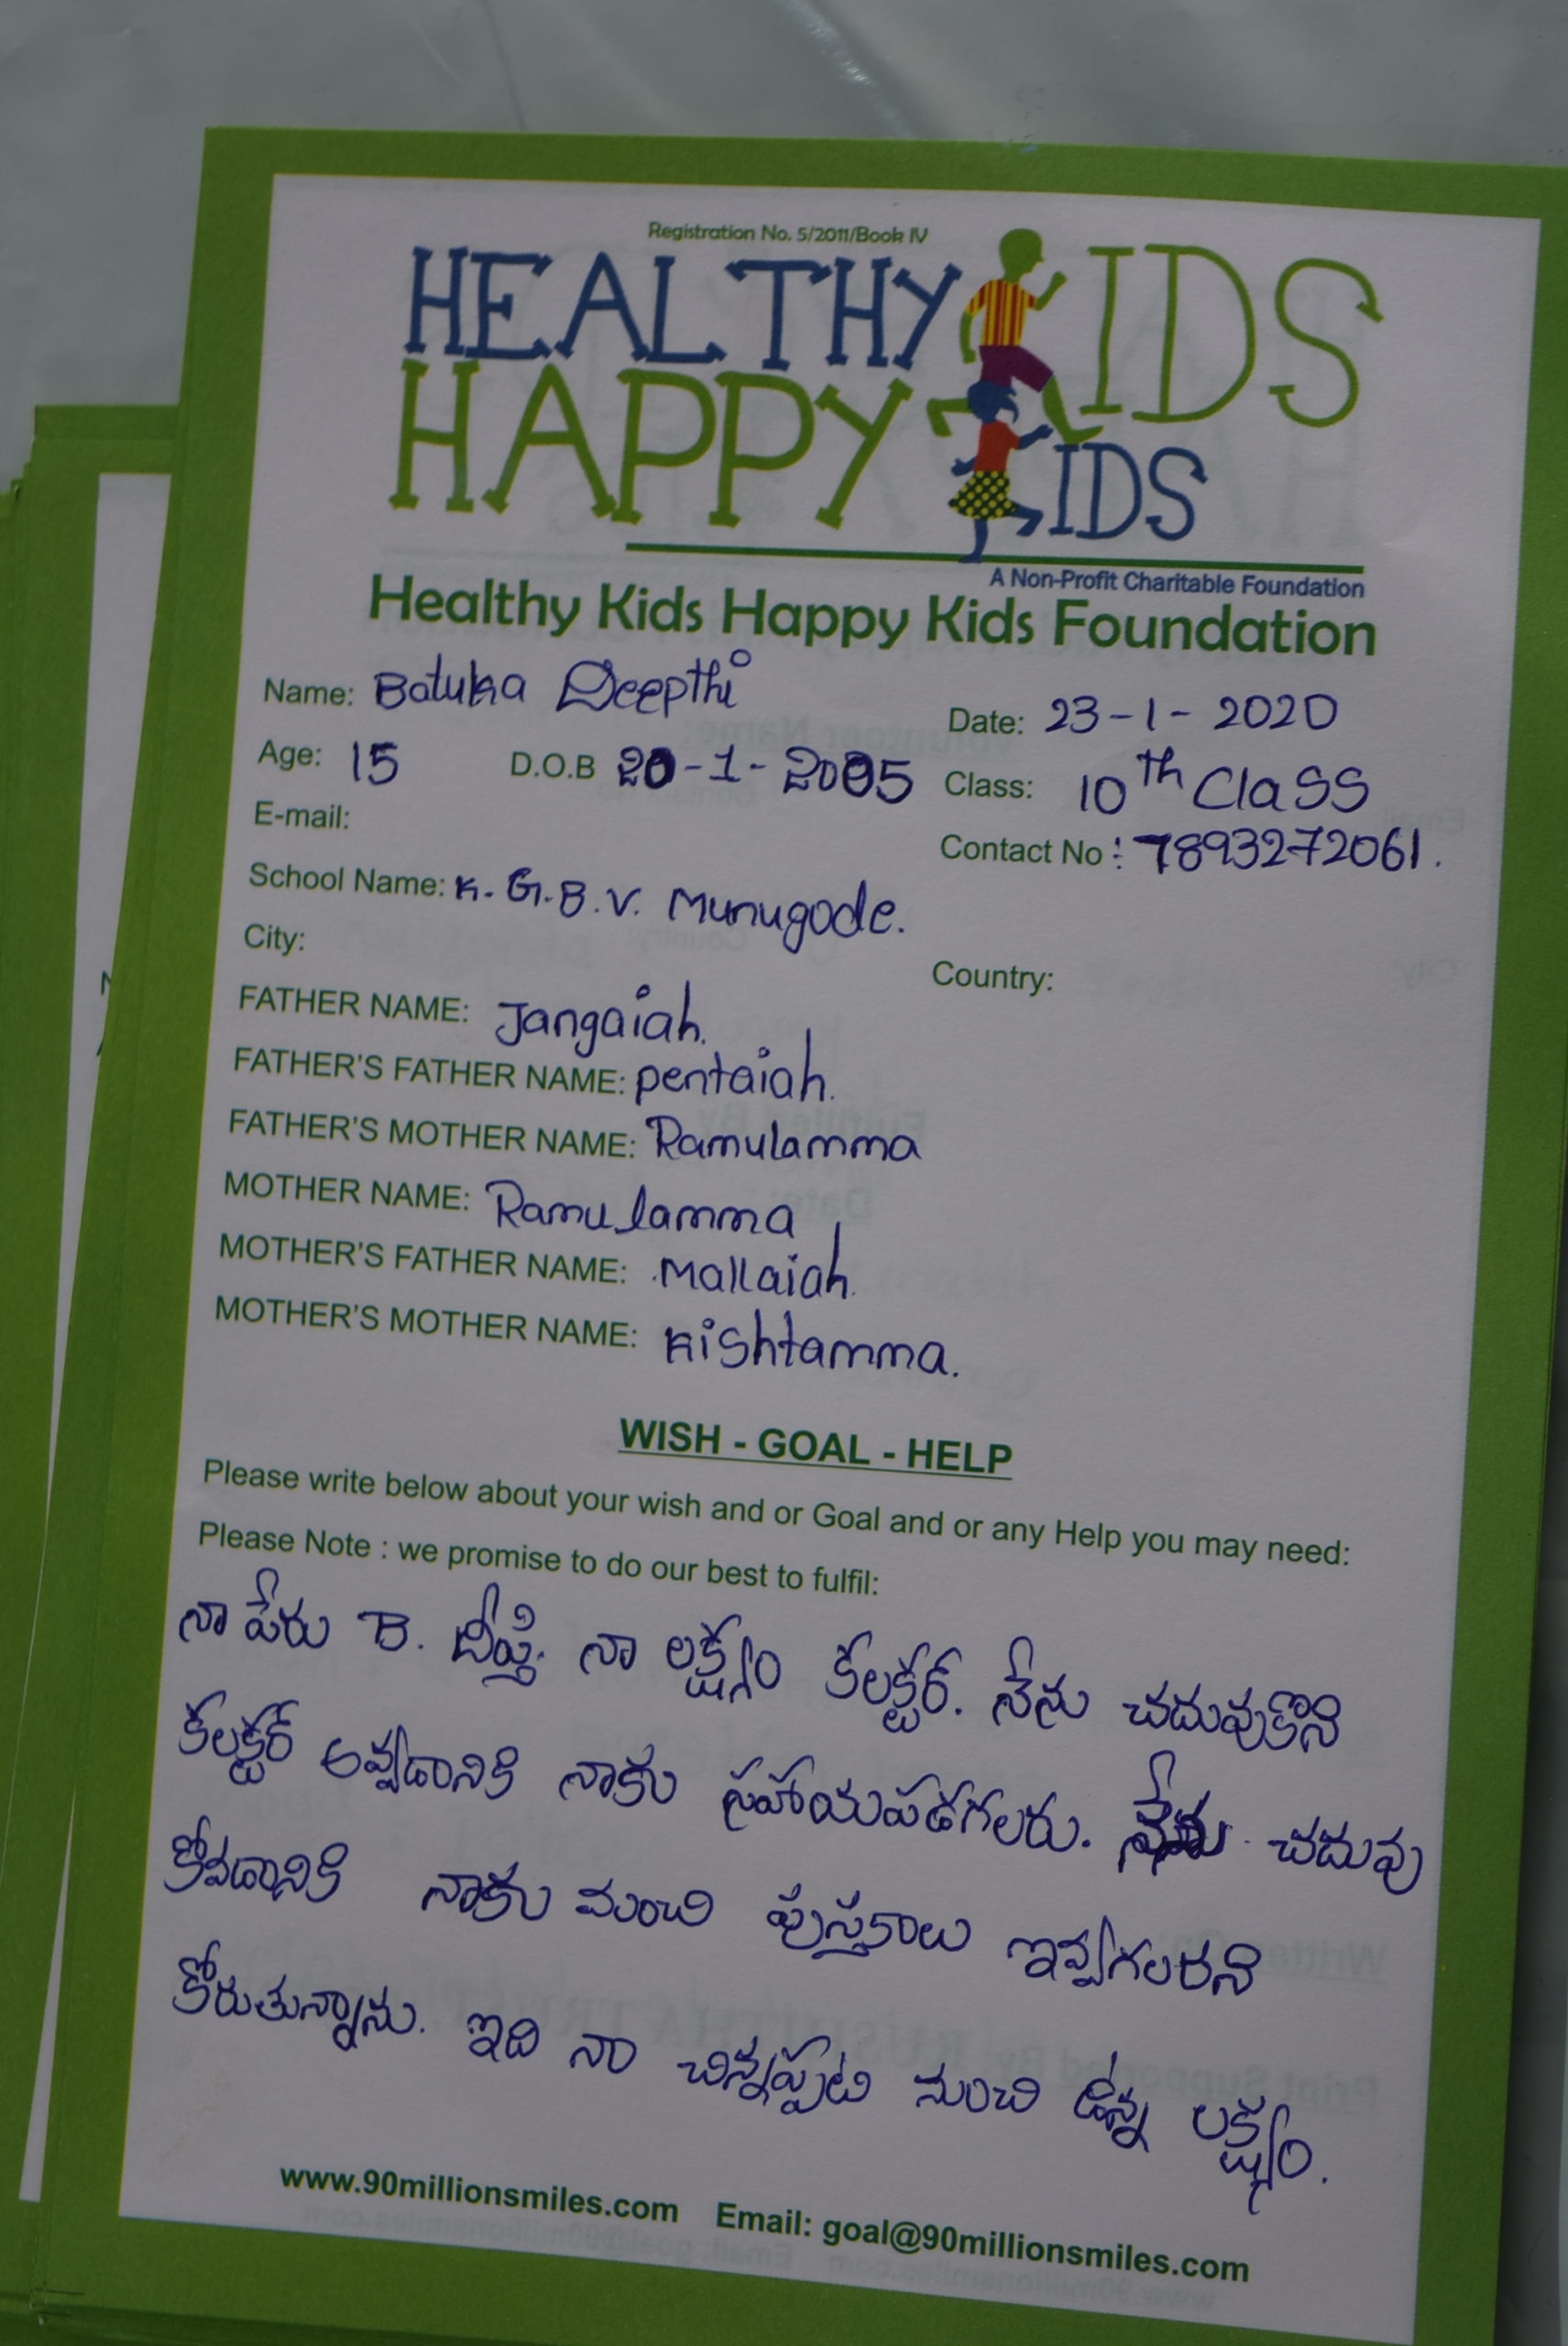 Registration No. 5/2011/Book IV
HEALTHY KIDS
HAPPY KIDS
A Non-Profit Charitable Foundation
Healthy Kids Happy Kids Foundation
Name: Batuka Deepthi Date: 23-1-2020
Age: 15 D.O.B 20-1-2005 Class: 10th Class
E-mail: Contact No: 7893272061.
School Name: K.G.B.V. Munugode.
City: Country:
FATHER NAME: Jangaiah.
FATHER'S FATHER NAME: pentaiah.
FATHER'S MOTHER NAME: Ramulamma
MOTHER NAME: Ramulamma
MOTHER'S FATHER NAME: Mallaiah.
MOTHER'S MOTHER NAME: Kishtamma.
WISH - GOAL - HELP
Please write below about your wish and or Goal and or any Help you may need:
Please Note : we promise to do our best to fulfil:
నా పేరు B. దీప్తి. నా లక్ష్యం కలక్టర్. నేను చదువుకొని
కలక్టర్ అవ్వడానికి నాకు సహాయపడగలరు. నేను చదువు
కోవడానికి నాకు మంచి పుస్తకాలు ఇవ్వగలరని
కోరుతున్నాను. ఇది నా చిన్నప్పటి నుంచి ఉన్న లక్ష్యం.
www.90millionsmiles.com Email: goal@90millionsmiles.com